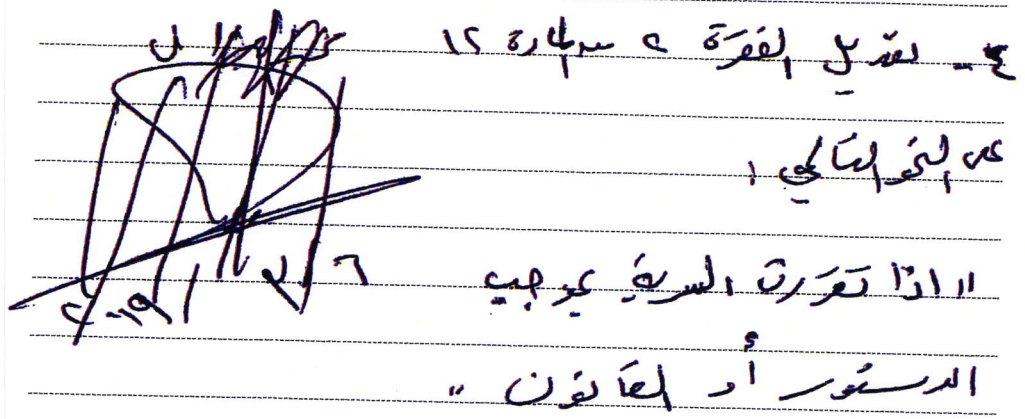 ٤- تعديل الفقرة ٢ من المادة ١٢
على النحو التالي :
" اذا تقررت السرية بموجب
الدستور أو القانون "